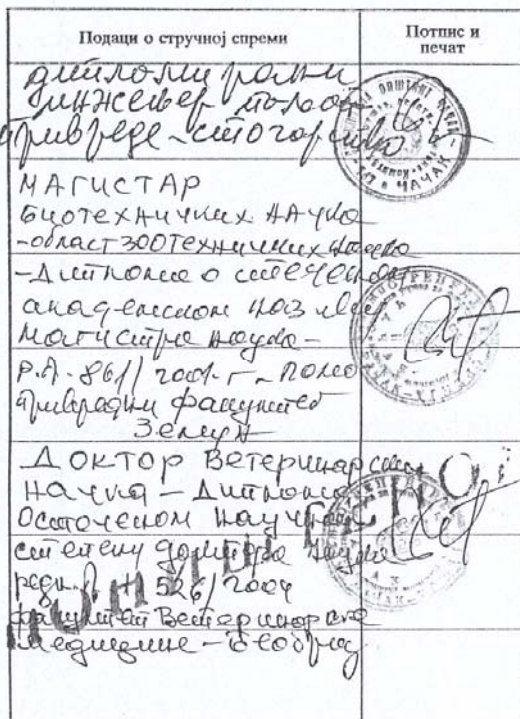 Подаци о стручној спреми
Потпис и
печат
дипломирани
инжењер пољо
привреде - сточарство
МАГИСТАР
БИОТЕХНИЧКИХ НАУКА
-област ЗООТЕХНИЧКИХ наука
- Диплома о стеченом
академском називу
магистра наука -
Р.А. 861/2001. г - Пољо
привредни факултет
Земун
ДОКТОР Ветеринарских
Наука - Диплома
О стеченом научном
степену доктора наука
526/2004
факултет Ветеринарске
медицине - Београд
ЧАЧАК